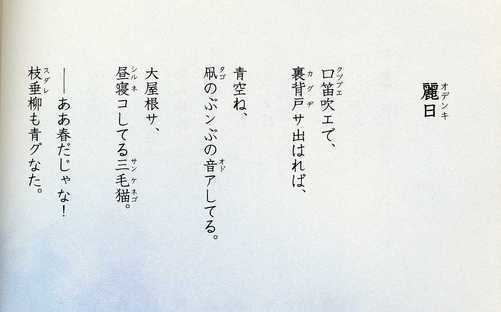 オデンキ
麗日
クツブエ
口笛吹エで、
カグヂ
裏背戸サ出はれば、
青空ね、
タゴ オド
凧のぶンぶの音アしてる。
大屋根サ、
シルネ サンケネゴ
昼寝コしてる三毛猫。
──ああ春だじゃな！
スダレ
枝垂柳も青グなた。